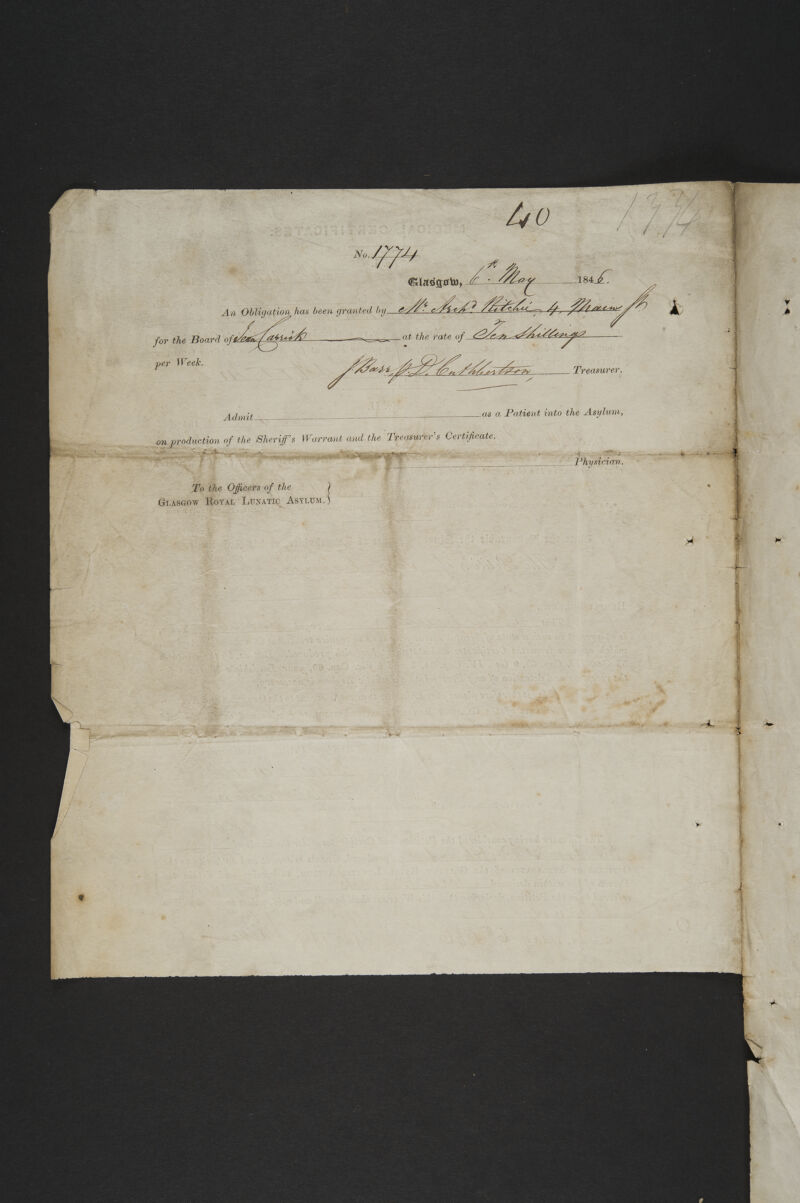 40
1774
No. 1774
Glasgow, 6th. May 1846.
An Obligation has been granted by Mr. Archd. Ritchie, 4. Main St
for the Board of Jean Carrick at the rate of Ten Shillings
per Week.
J Barr p. D. Cuthbertson, Treasurer.
Admit as a Patient into the Asylum,
on production of the Sheriff's Warrant and the Treasurer's Certificate.
Physician.
To the Officers of the
GLASGOW ROYAL LUNATIC ASYLUM.